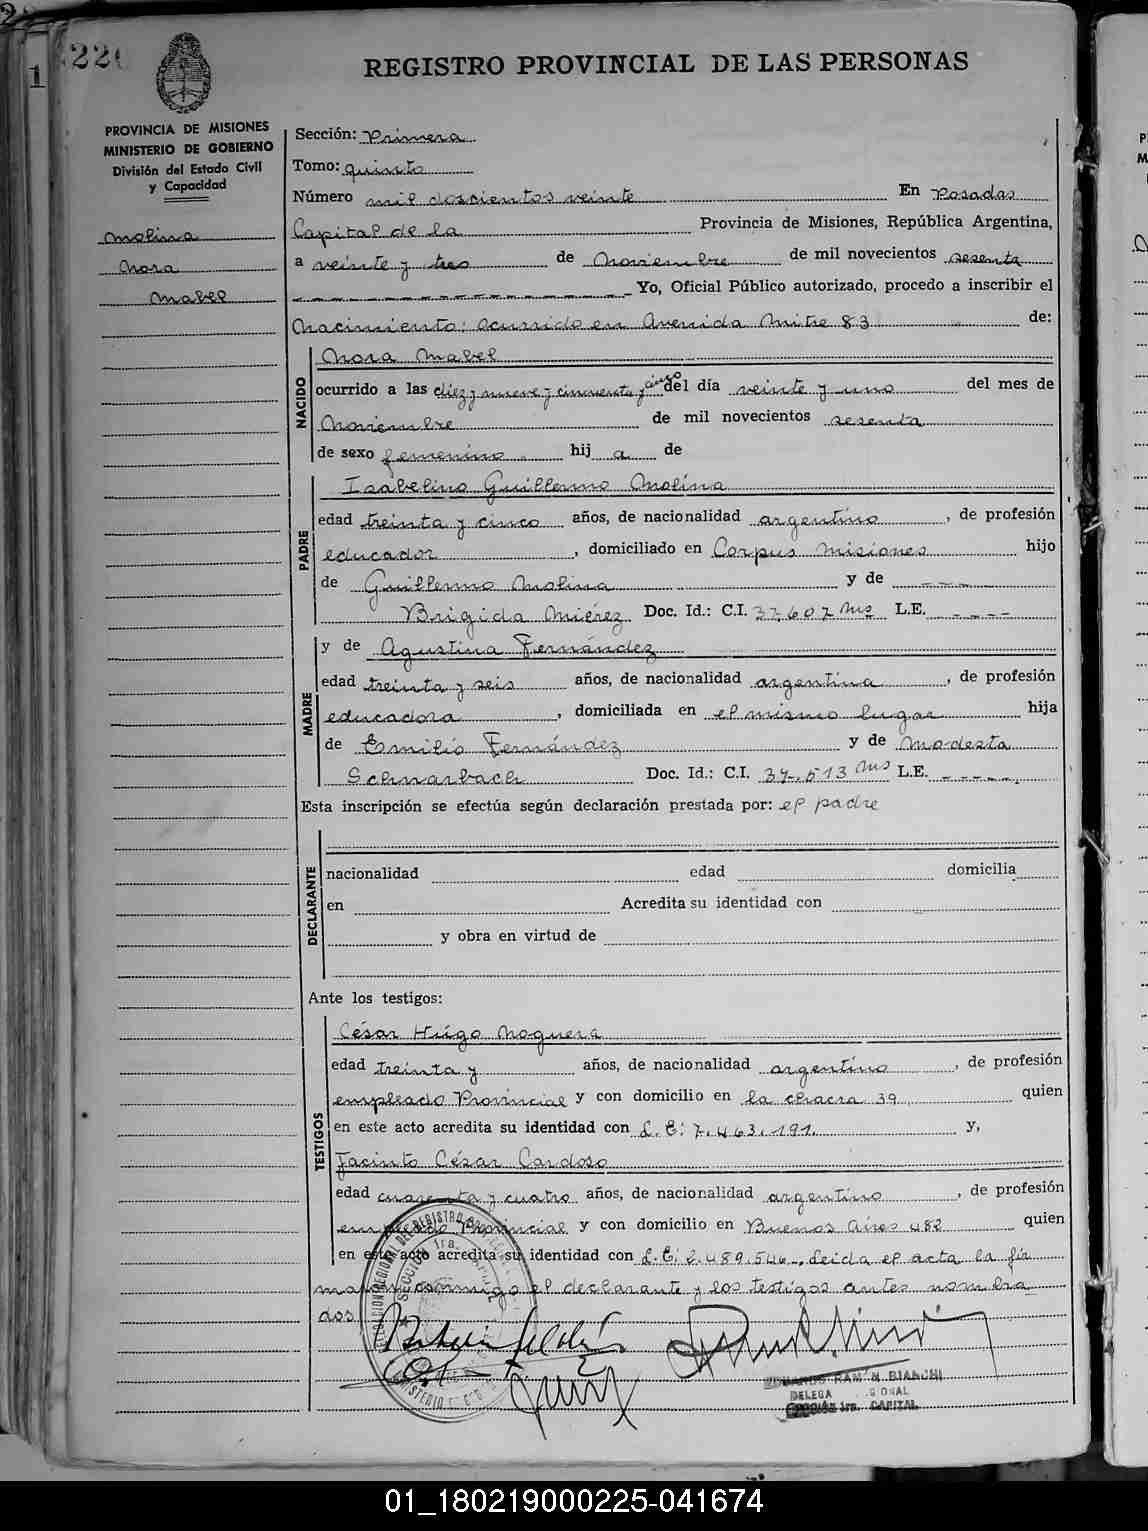 220
1
REGISTRO PROVINCIAL DE LAS PERSONAS
PROVINCIA DE MISIONES
MINISTERIO DE GOBIERNO
División del Estado Civil
y Capacidad
Molina
Nora
Mabel
Sección: Primera
Tomo: quinto
Número mil doscientos veinte En Posadas
Capital de la Provincia de Misiones, República Argentina,
a veinte y tres de Noviembre de mil novecientos sesenta
Yo, Oficial Público autorizado, procedo a inscribir el
Nacimiento; ocurrido en Avenida Mitre 83 de:
NACIDO
Nora Mabel
ocurrido a las diez y nueve y cincuenta y cinco del día veinte y uno del mes de
Noviembre de mil novecientos sesenta
de sexo femenino. hij a de
PADRE
Isabelino Guillermo Molina
edad treinta y cinco años, de nacionalidad argentino, de profesión
educador, domiciliado en Corpus Misiones hijo
de Guillermo Molina y de
Brigida Miérez Doc. Id.: C.I. 37.607 Mns L.E.
MADRE
y de Agustina Fernández
edad treinta y seis años, de nacionalidad argentina, de profesión
educadora, domiciliada en el mismo lugar hija
de Emilio Fernández y de Modesta
Schwarbach Doc. Id.: C.I. 37.513 Mns L.E.
Esta inscripción se efectúa según declaración prestada por: el padre
DECLARANTE
nacionalidad edad domicilia
en Acredita su identidad con
y obra en virtud de
Ante los testigos:
TESTIGOS
César Hugo Noguera
edad treinta y años, de nacionalidad argentino, de profesión
empleado Provincial y con domicilio en la chacra 39 quien
en este acto acredita su identidad con L.E: 7.463.191. y,
Jacinto César Cardoso
edad cuarenta y cuatro años, de nacionalidad argentino, de profesión
empleado Provincial y con domicilio en Buenos Aires 482 quien
en este acto acredita su identidad con L.E: 2.489.546., leida el acta la fir
man conmigo el declarante y los testigos antes nombra
dos
EDUARDO RAMON BIANCHI
SECCIÓN 1ra. CAPITAL
01_180219000225-041674